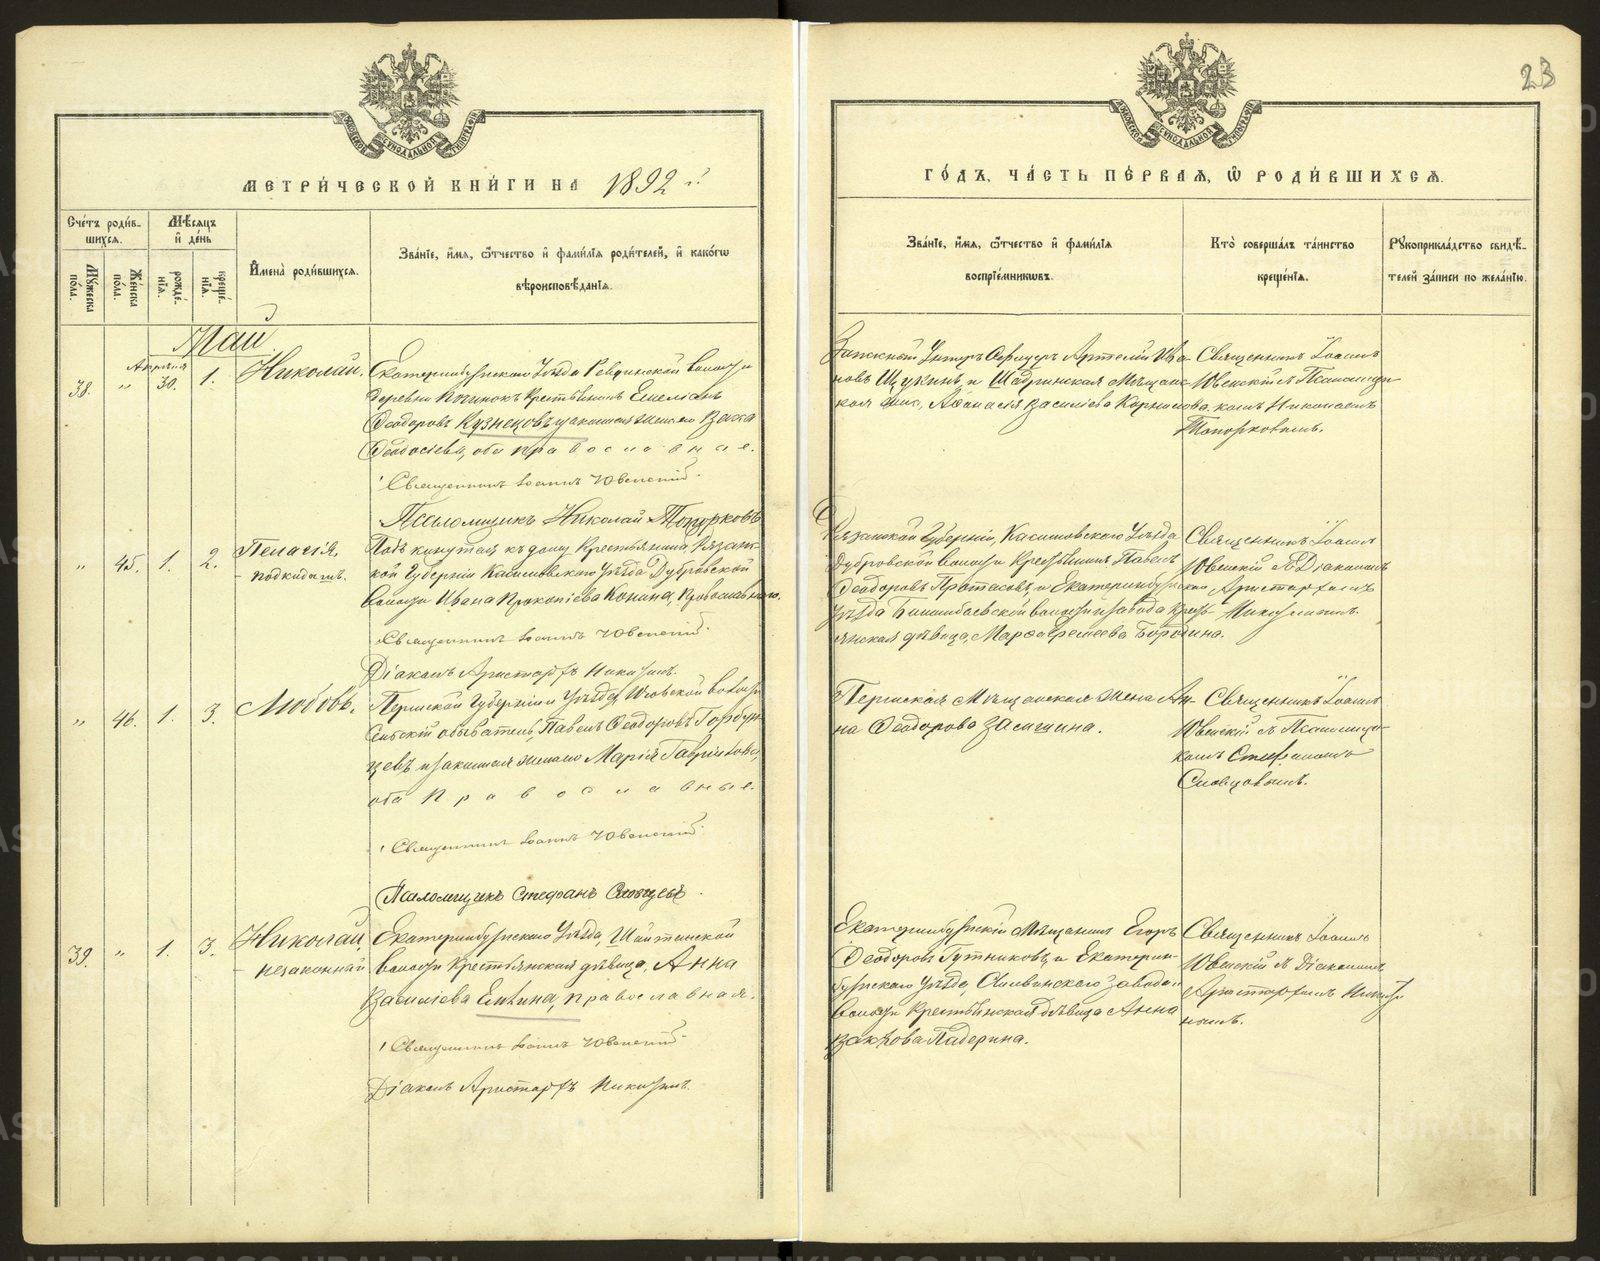 МЕТРИ́ЧЕСКОЙ КНИ́ГИ НА 1892 г.
Сче́тъ роди́в-
шихся.
Мѣ́сяцъ
и҆ де́нь
Мꙋ́жеска по́ла.
Же́нска по́ла.
рожде́-
нїѧ.
креще́-
нїѧ.
И҆мена̀ роди́вшихсѧ.
Зва́нїе, и҆́мѧ, ѻ҆́тчество и҆ фами́лїѧ роди́телей, и҆ како́гѡ
вѣроисповѣ́данїѧ.
Май
38. " Апрѣля 30. 1. Николай.
Екатеринбургскаго Уѣзда Ревдинской волости
деревни Починокъ Крестьянинъ Емельянъ
Ѳеодоровъ Кузнецовъ и законная жена его
Ѳеодосіева, оба православные.
Священникъ Іоаннъ Ювенскій.
Псаломщикъ Николай Топорковъ
" 45. 1. 2. Пелагія,
- подкидышъ.
Подъ кинутая къ дому Крестьянина Рязанс-
кой Губерніи Касимовскаго Уѣзда Дубровской
волости Ивана Прокопіева Конина, Православнаго.
Священникъ Іоаннъ Ювенскій.
Діаконъ Аристархъ Никитинъ.
" 46. 1. 3. Любовь.
Пермской Губерніи и Уѣзда, Юговской волости
Сельскій обыватель, Павелъ Ѳеодоровъ Горбун-
цевъ и законная жена его Марія Гаврилова,
оба Православные.
Священникъ Іоаннъ Ювенскій.
Псаломщикъ Стефанъ Словцовъ.
39. " 1. 3. Николай,
- незаконный
Екатеринбургскаго Уѣзда, Шайтанской
волости Крестьянская дѣвица, Анна
Василіева Елькина, православная.
Священникъ Іоаннъ Ювенскій.
Діаконъ Аристархъ Никитинъ.
23
ГО́ДЪ, ЧА́СТЬ ПЕ́РВАѦ, Ѽ РОДИ́ВШИХСѦ.
Зва́нїе, и҆́мѧ, ѻ҆́тчество и҆ фами́лїѧ
воспрїе́мникѡвъ.
Кто̀ соверша́лъ та́инство
креще́нїѧ.
Рꙋкоприкла́дство свидѣ́-
телей за́писи по жела́нїю.
Запасной Унтеръ Офицеръ Артемій Ива-
новъ Щукинъ, и Шадринская Мѣщанс-
кая Аѳанасія Василіева Корнилова.
Священникъ Іоаннъ
Ювенскій съ Псаломщи-
комъ Николаемъ
Топорковымъ.
Рязанской Губерніи, Касимовскаго Уѣзда
Дубровской волости Крестьянинъ Павелъ
Ѳеодоровъ Протасовъ, и Екатеринбургскаго
Уѣзда Билимбаевской волости и завода Кресть-
янская дѣвица, Марѳа Бородина.
Священникъ Іоаннъ
Ювенскій съ Діакономъ
Аристархомъ
Никитинымъ.
Пермская Мѣщанская жена Ан-
на Ѳеодорова Засыпина.
Священникъ Іоаннъ
Ювенскій съ Псаломщи-
комъ Стефаномъ
Словцовымъ.
Екатеринбургскій Мѣщанинъ Егоръ
Ѳеодоровъ Гутниковъ, и Екатерин-
бургскаго Уѣзда, Сылвинскаго завода
волости Крестьянская дѣвица Анна
Падерина.
Священникъ Іоаннъ
Ювенскій съ Діакономъ
Аристархомъ Никити-
нымъ.